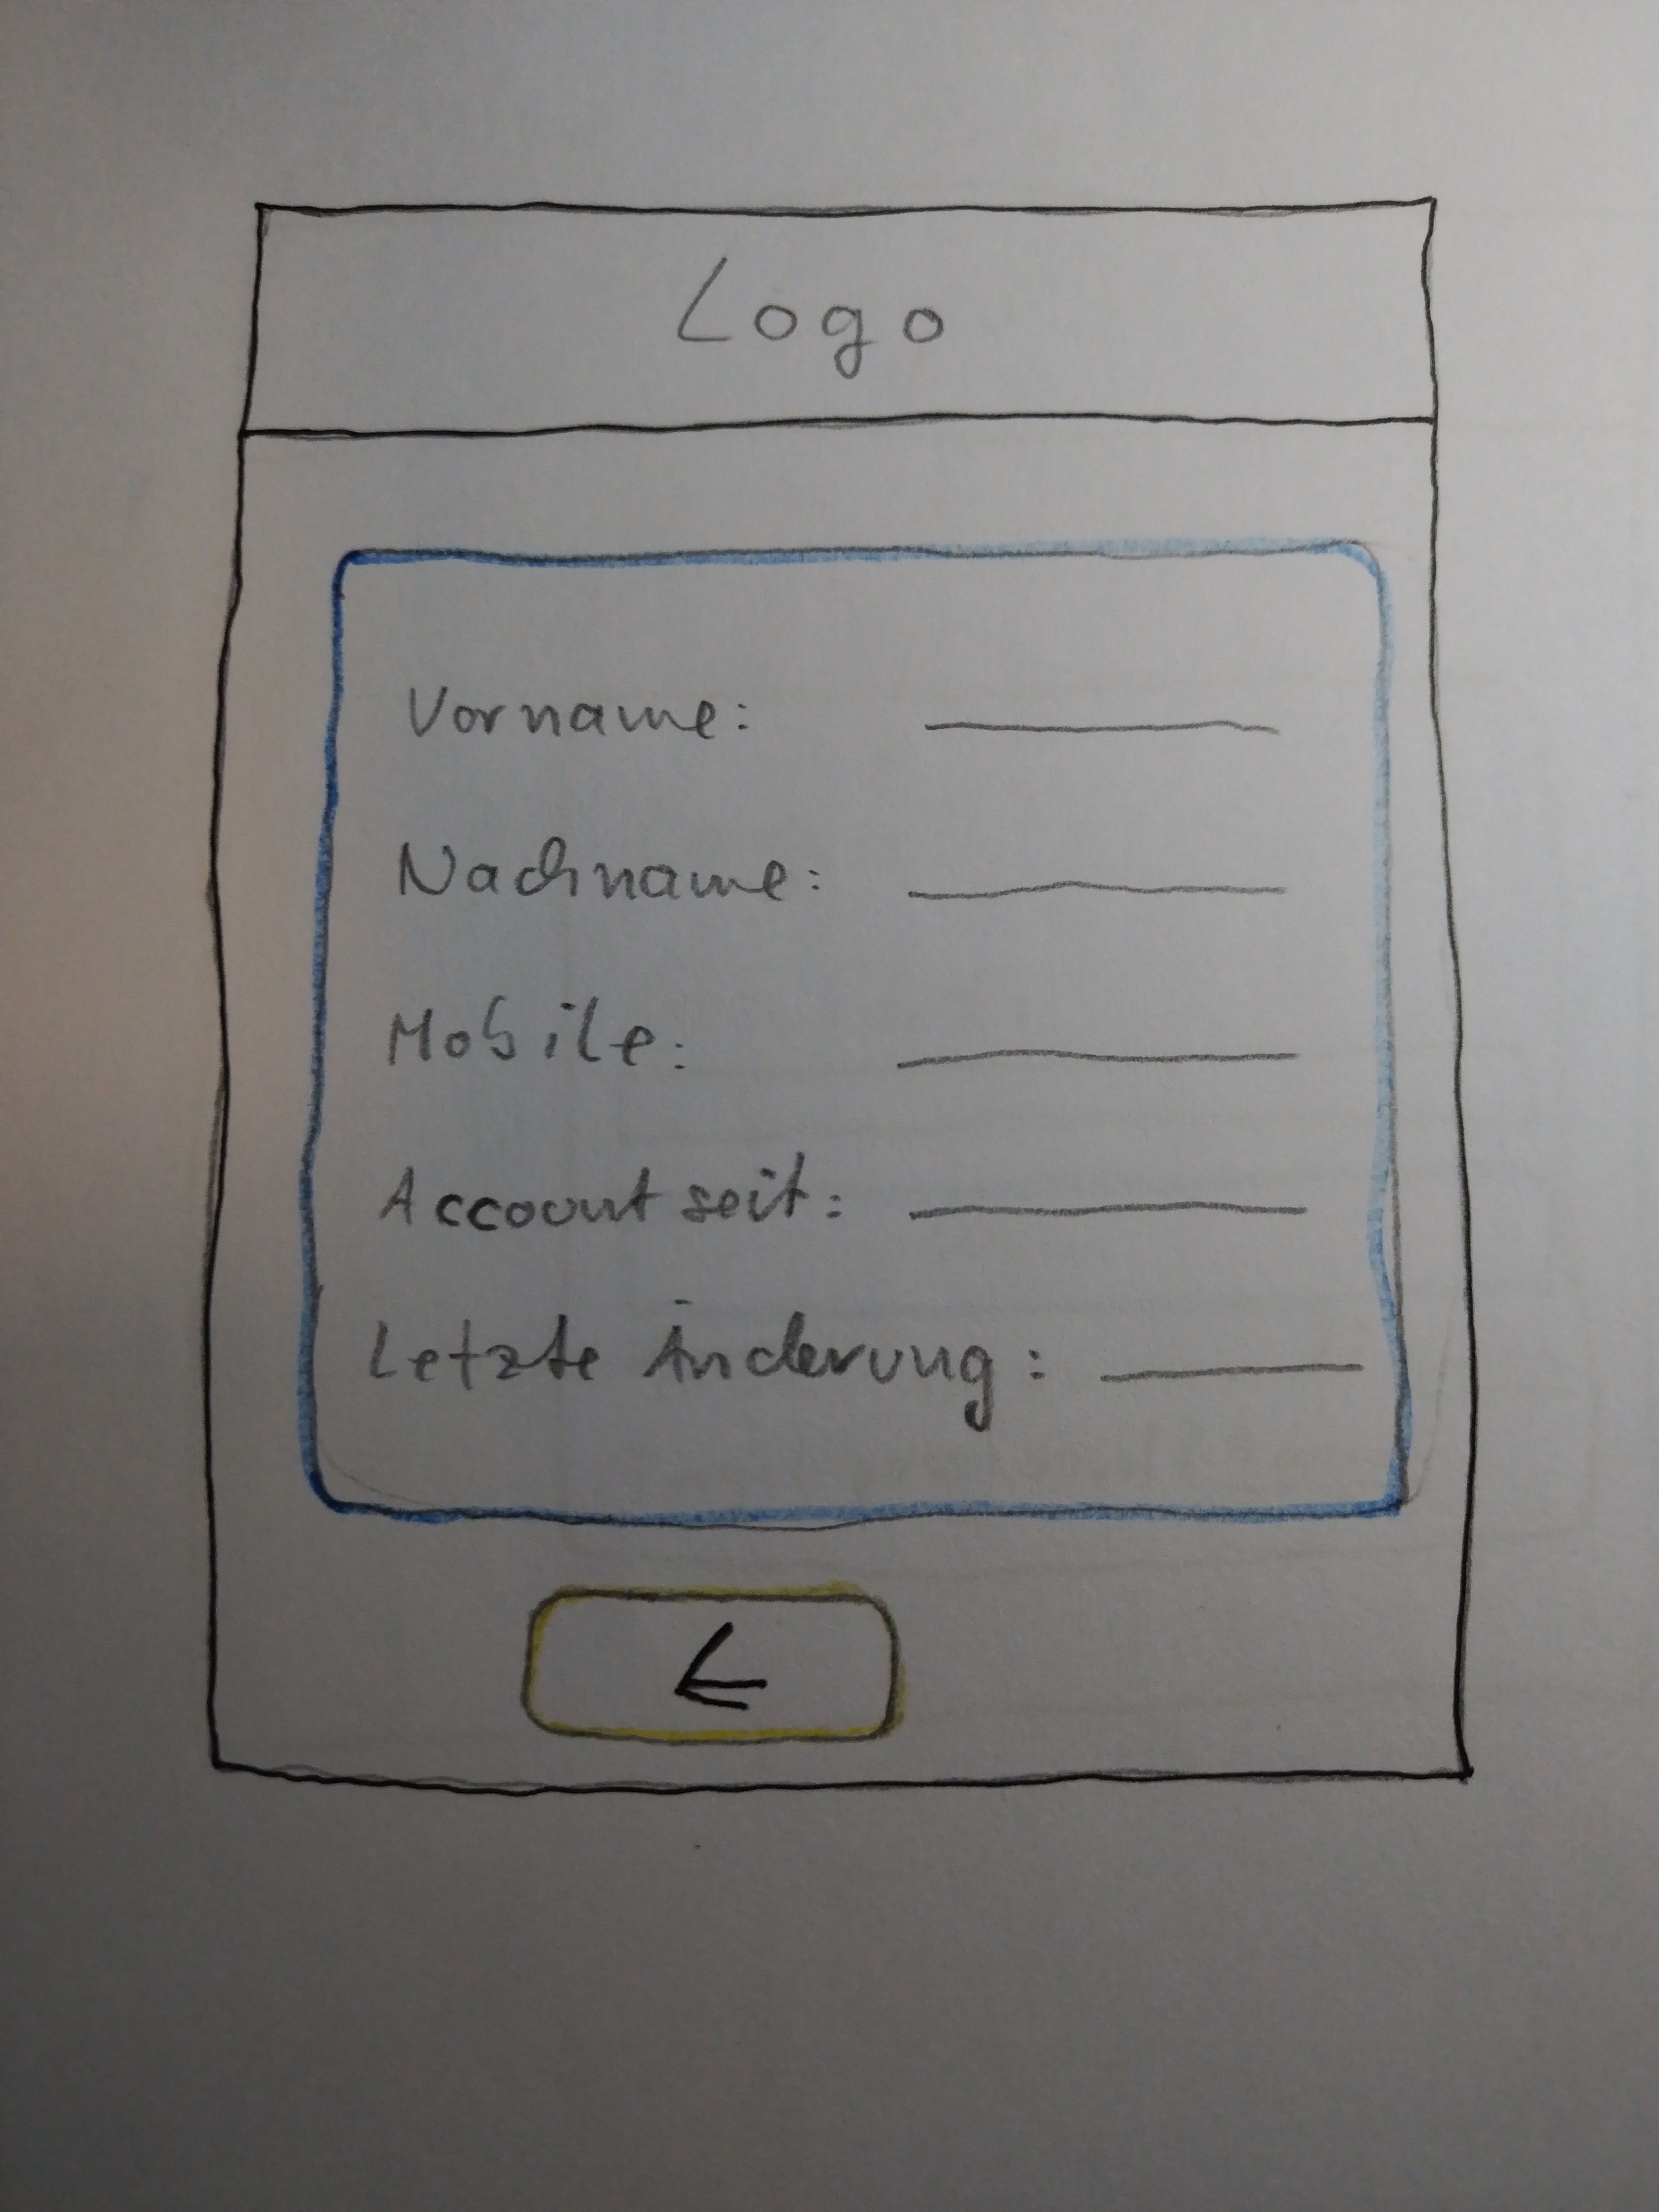 Logo
Vorname:
Nachname:
Mobile:
Account seit:
Letzte Änderung: